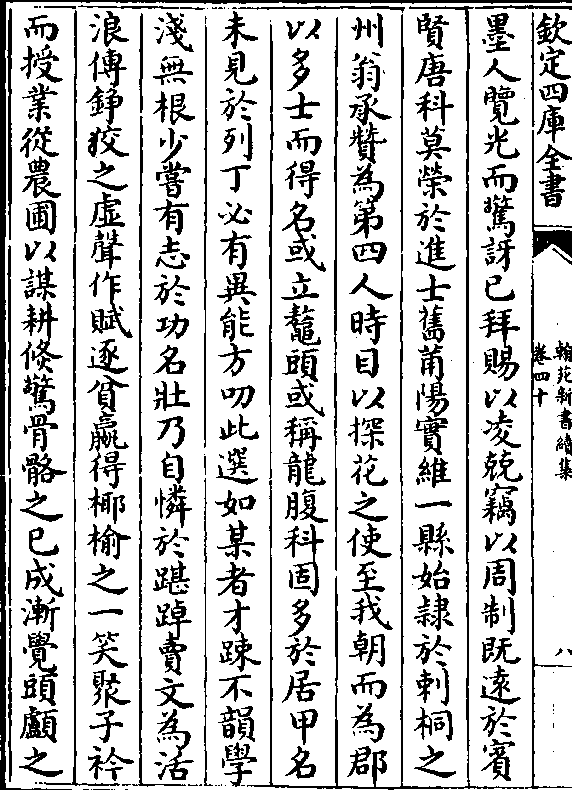 欽定四庫全書
翰苑新書續集
卷四十
八
墨人覽光而驚訝已拜賜以凌兢竊以周制既遠於賓
賢唐科莫榮於進士舊莆陽實維一縣始隸於刺桐之
州翁承贊為第四人時目以探花之使至我朝而為郡
以多士而得名或立鼇頭或稱龍腹科固多於居甲名
未見於列丁必有異能方叨此選如某者才踈不韻學
淺無根少嘗有志於功名壯乃自憐於踸踔賣文為活
浪傳錚狡之虛聲作賦逐貧贏得椰榆之一笑聚子衿
而授業從農圃以謀耕倐驚骨骼之已成漸覺頭顱之